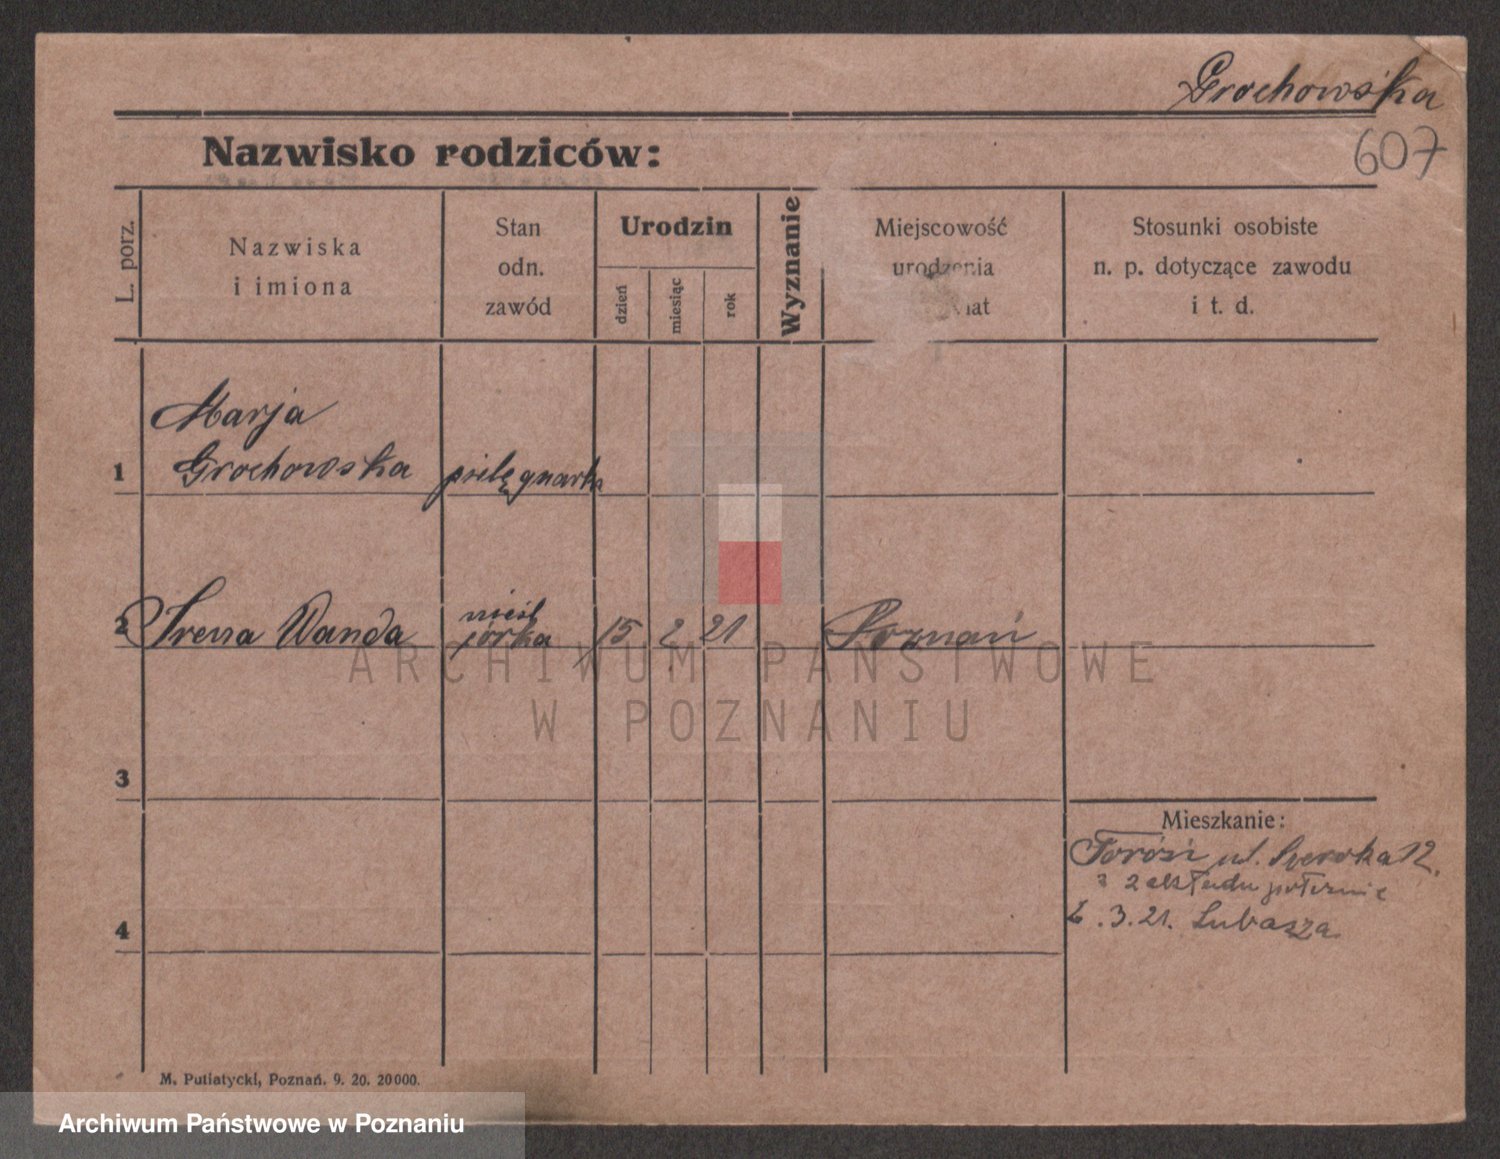 Grochowska
607
Nazwisko rodziców:
L. porz.
Nazwiska
i imiona
Stan
odn.
zawód
Urodzin
dzień
miesiąc
rok
Wyznanie
Miejscowość
urodzenia
Stosunki osobiste
n. p. dotyczące zawodu
i t. d.
1
Marja
Grochowska
pielęgnarka
2
Irena Wanda
nieśl
córka
15
2
21
Poznań
ARCHIWUM PAŃSTWOWE
W POZNANIU
3
4
Mieszkanie:
Toruń ul. Szeroka 12.
3.21. Lubasza
M. Putiatycki, Poznań. 9. 20. 20000.
Archiwum Państwowe w Poznaniu